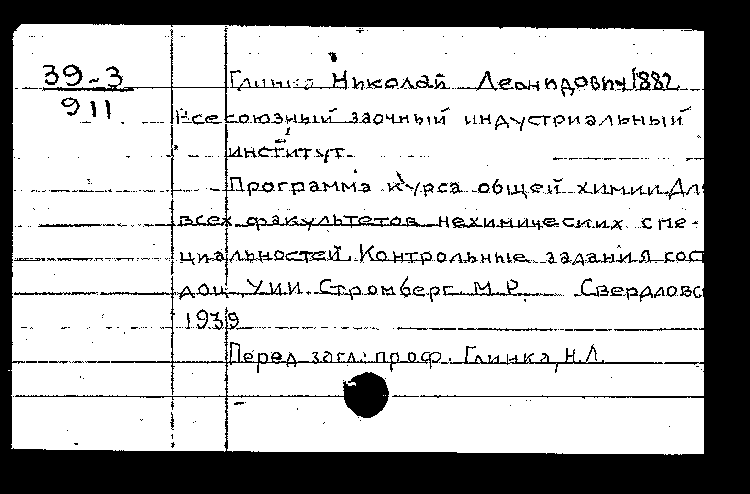 39-3
911
Глинка Николай Леонидович 1882
Всесоюзный заочный индустриальный
институт.
Программа курса общей химии. Для
всех факультетов нехимических спе-
циальностей. Контрольные задания сост
доц. УИИ Стромберг М.Р. Свердловс
1939
Перед загл.: проф. Глинка, Н.Л.